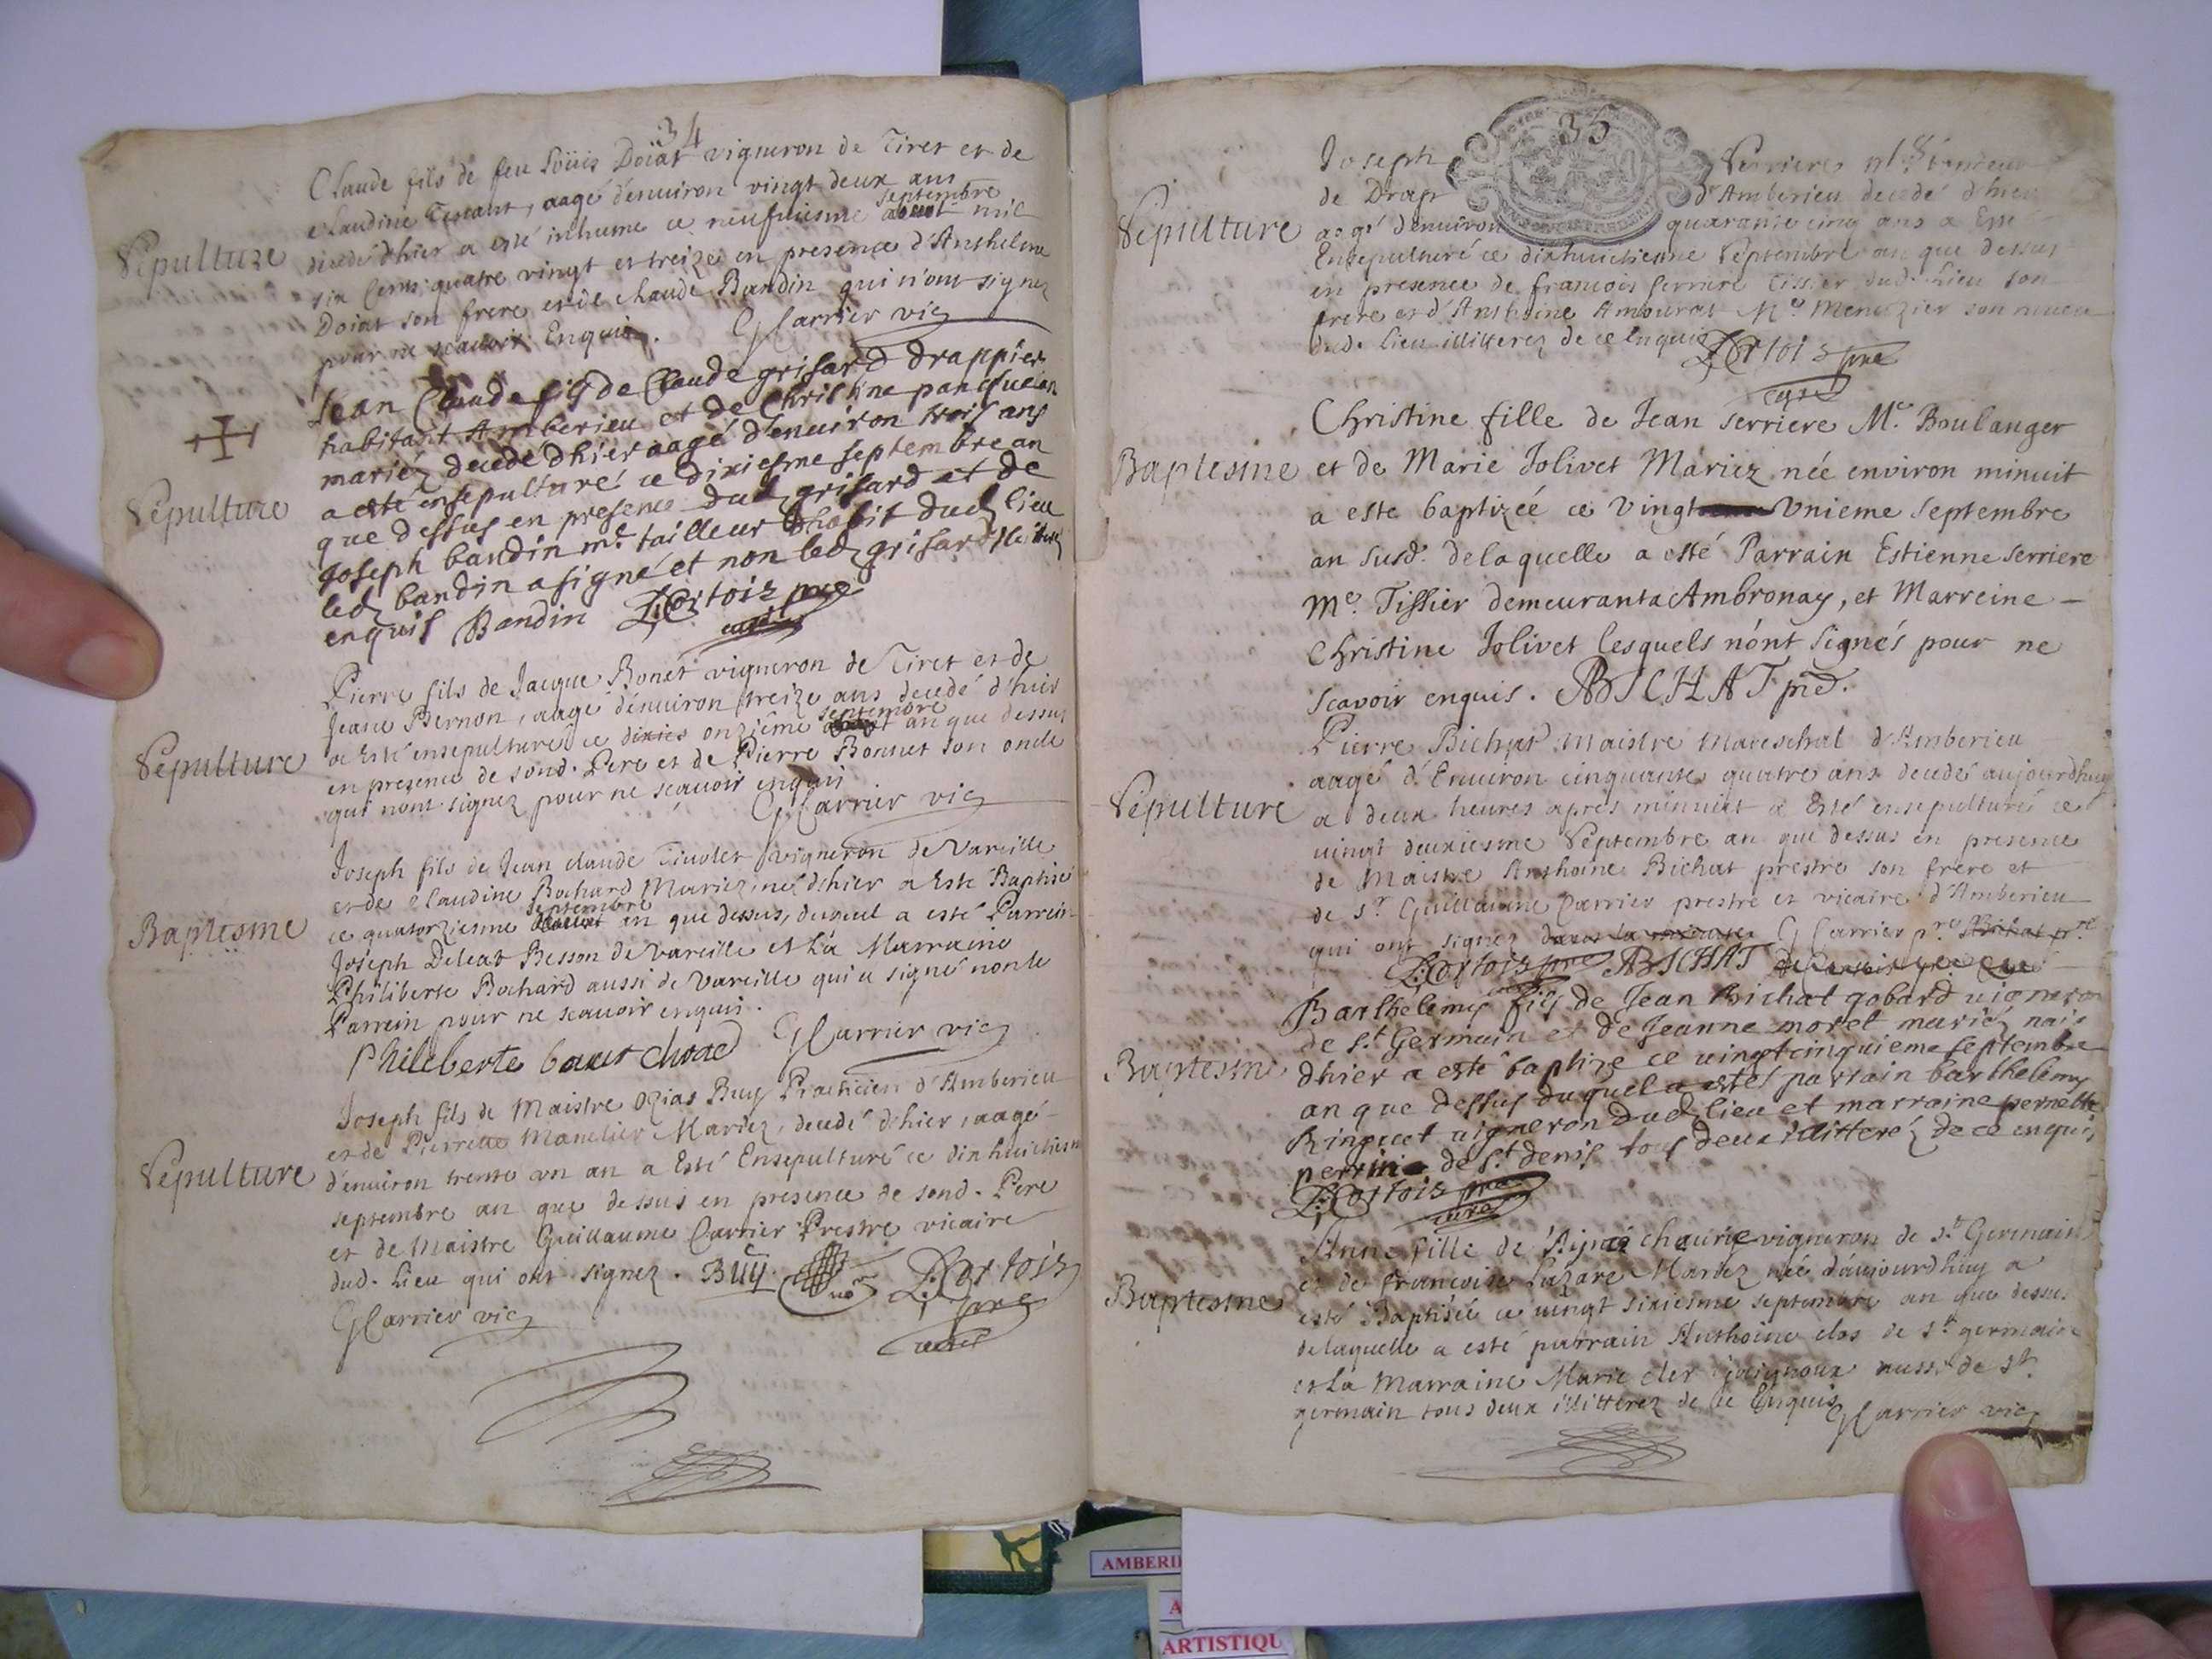 34
Claude fils de feu Loüis Doïat vigneron de Tiret et de
Claudine Tenant, aagé d'enuiron vingt deux ans
decedé d'hier a esté inhumé ce neufuiesme aoust septembre mil
six cents quatre vingt et treize en presence d'Anthelme
Doiat son frere et de Claude Bandin qui n'ont signez
pour ne scauoir Enquis. GCarrier vic
Sepulture
Jean Claude fils de Claude grisard drappier
habitant Amberieu et de Christine
mariez decedé dhier aagé d'enuiron trois ans
a esté ensepulturé ce dixiesme septembre an
que dessus en presence dud grisard et de
Joseph bandin mre tailleur dhabit dud lieu
led bandin a signé et non led grisard illiteré
enquis Bandin Cortois pre
curé
Sepulture
Pierre fils de Jacque Bonet vigneron de Tiret et de
Jeane Bernon, aagé d'enuiron treize ans decedé d'hier
a Esté ensepulturé ce dixies onziéme septembre an que dessus
en presence de sond. Pere et de Pierre Bonnet son oncle
qui nont signez pour ne scauoir enquis
GCarrier vic
Sepulture
Joseph fils de Jean claude Tiuolet vigneron de Vareille
et de Claudine Bochard Mariez, né d'hier a Esté Baptisé
ce quatorziesme septembre an que dessus, duquel a esté Parrein
Joseph Deleat Besson de Vareille et La Marraine
Philiberte Bochard aussi de Vareille qui a signé non le
Parrein pour ne scauoir enquis.
Philiberte GCarrier vic
Baptesme
Joseph fils de Maistre Ozias Buy Praticien d'Amberieu
et de Pierrette Mariez, decedé d'hier, aagé
d'enuiron trente vn an a Esté Ensepulturé ce dix huictiesme
septembre an que dessus en presence de sond. Pere
et de Maistre Guillaume Carrier Prestre vicaire
dud. Lieu qui ont signez. Buy Cortois
GCarrier vic pre
curé
Sepulture
35
Joseph Serriere
de Drap d'Amberieu decedé d'hier
aagé d'enuiron quarante cinq ans a Esté
Ensepulturé ce dixhuictiesme Septembre an que dessus
en presence de francois serriere Tissier dud. Lieu son
frere et d'Anthoine Amourat Me Menuzier son nueu
dud. Lieu illitterez de ce Enquis Cortois pre
curé
Sepulture
Christine fille de Jean serriere Me. Boulanger
et de Marie Jolivet Mariez née environ minuit
a este baptizéé ce vingt Vnieme septembre
an susd. de laquelle a esté Parrain Estienne serriere
Me. Tissier demeurant a Ambronay, et Marreine –
Christine Jolivet lesquels n'ont signés pour ne
scavoir enquis. ABICHAT
Baptesme
Pierre Bichat Maistre Mareschal d'Amberieu
aagé d'Enuiron cinquante quatre ans decedé aujourdhuy
a deux heures apres minuict a Esté ensepulturé ce
uingt deuxiesme Septembre an que dessus en presence
de Maistre Anthoine Bichat prestre son frere et
de sr Guillaume Carrier prestre et vicaire d'Amberieu
qui ont signez GCarrier pre
Cortois pre ABICHAT
Sepulture
Barthelemy fils de Jean Bichat gobard uigneron
de st Germain et de Jeanne morel mariez nais
dhier a esté baptize ce uingtcinquieme septembre
an que dessus duquel a estes parrain barthelemy
uigneron dud lieu et marraine pernette
perrin de st denis tous deux illitterez de ce enquis
Cortois pre
curé
Baptesme
Anne fille de vigneron de st Germain
et de francoise Lazare Mariez née d'aujourdhuy a
esté Baptisée ce uingt sixiesme septembre an que dessus
de laquelle a esté parrain Anthoine clos de st germain
et La marraine Marie aussi de st
germain tous deux illitterez de ce Enquis GCarrier vic
Baptesme
AMBERI
A
ARTISTIQU